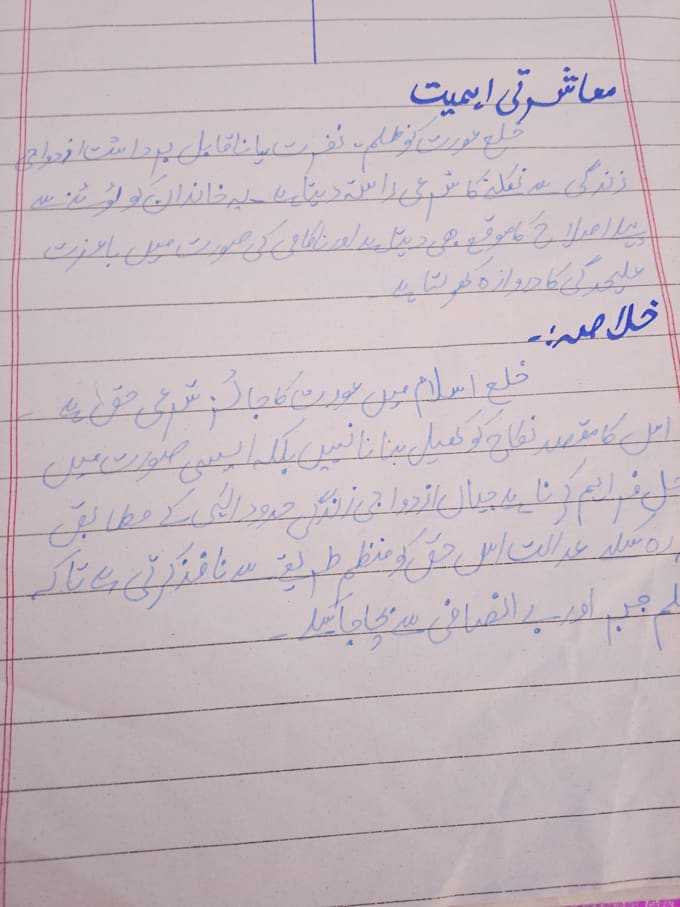 معاشرتی اہمیت
خلع عورت کو ظلم، نفرت یا ناقابل برداشت ازدواجی
زندگی سے نکلنے کا شرعی راستہ دیتا ہے۔ یہ خاندان کو ٹوٹنے سے
پہلے اصلاح کا موقع بھی دیتا ہے اور ناکامی کی صورت میں باعزت
علیحدگی کا دروازہ کھولتا ہے۔
خلاصہ:-
خلع اسلام میں عورت کا جائز شرعی حق ہے۔
اس کا مقصد نکاح کو کھیل بنانا نہیں بلکہ ایسی صورت میں
حل فراہم کرنا ہے جہاں ازدواجی زندگی حدود الٰہی کے مطابق
نہ رہ سکے عدالت اس حق کو منظم طریقے سے نافذ کرتی ہے تاکہ
ظلم جبر اور بے انصافی سے بچا جا سکے۔